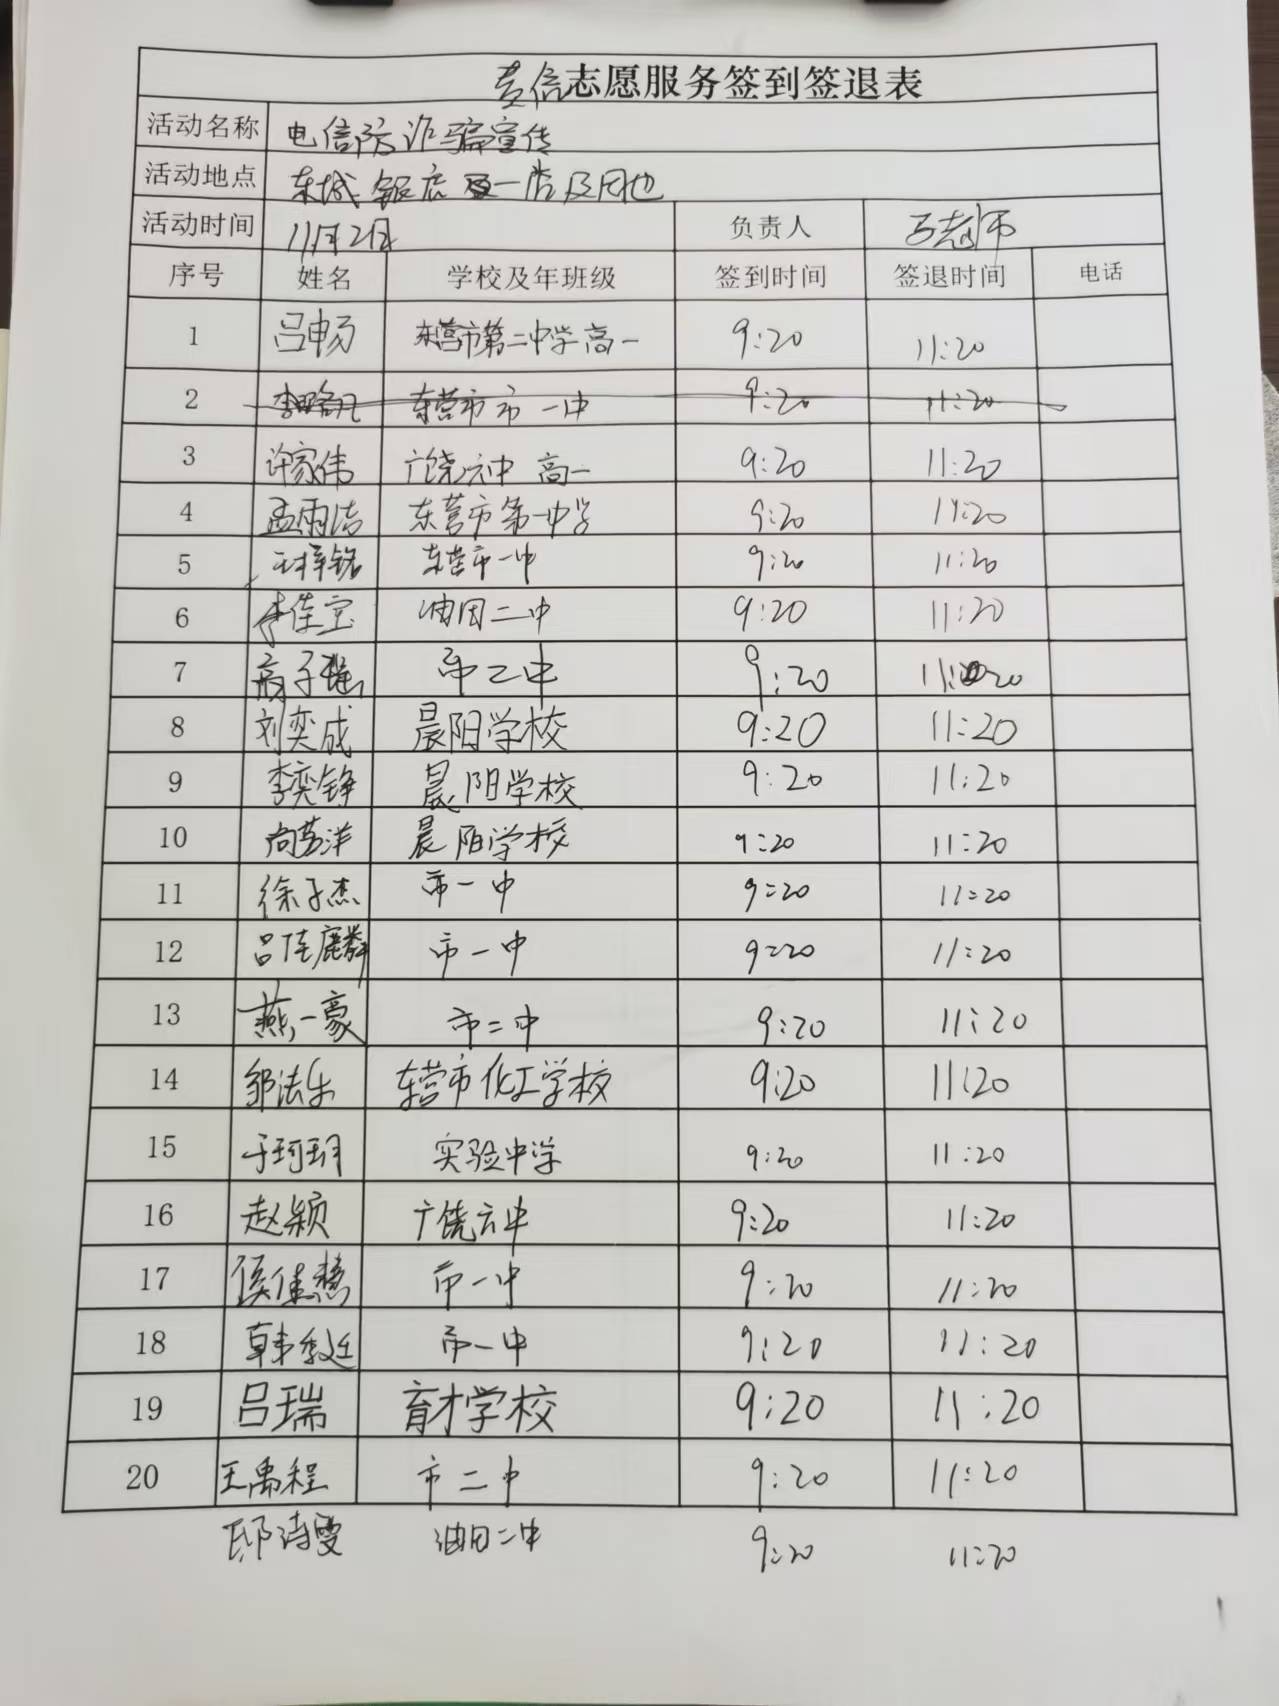 志愿服务签到签退表
活动名称 电信防诈骗宣传
活动地点 东城银座
活动时间 11月2日 负责人 老师
序号 姓名 学校及年班级 签到时间 签退时间 电话
1 吕畅 东营市第二中学高一 9:20 11:20
2 东营市市一中 9:20 11:20
3 许家伟 广饶六中 高一 9:20 11:20
4 孟雨洁 东营市第一中学 9:20 11:20
5 王梓铭 东营市一中 9:20 11:20
6 李佳宝 油田二中 9:20 11:20
7 高子 市二中 9:20 11:20
8 刘奕成 晨阳学校 9:20 11:20
9 李奕铮 晨阳学校 9:20 11:20
10 尚艺洋 晨阳学校 9:20 11:20
11 徐子杰 市一中 9:20 11:20
12 吕佳麟 市一中 9:20 11:20
13 燕一豪 市二中 9:20 11:20
14 邹法乐 东营市化工学校 9:20 11:20
15 于珂玥 实验中学 9:20 11:20
16 赵颖 广饶六中 9:20 11:20
17 侯佳慧 市一中 9:20 11:20
18 韩季廷 市一中 9:20 11:20
19 吕瑞 育才学校 9:20 11:20
20 王禹程 市二中 9:20 11:20
邸诗雯 油田二中 9:20 11:20